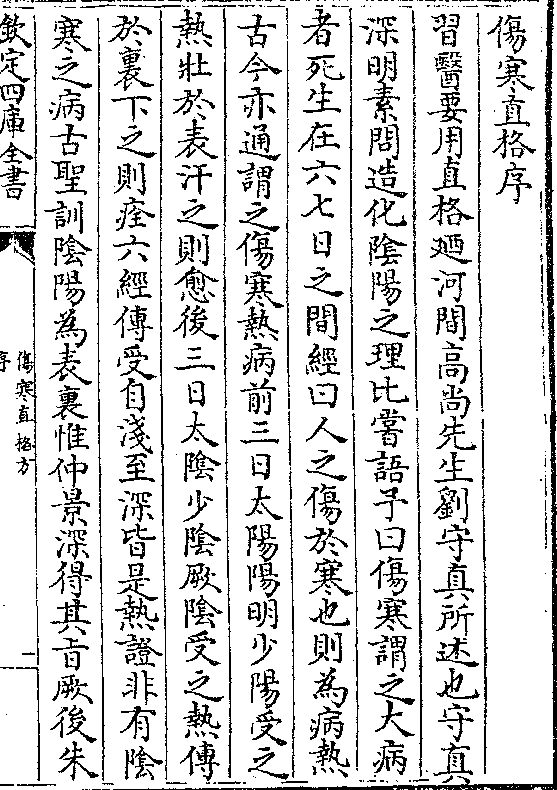 傷寒直格序
習醫要用直格廼河間高尚先生劉守真所述也守真
深明素問造化陰陽之理比嘗語予曰傷寒謂之大病
者死生在六七日之間經曰人之傷於寒也則為病熱
古今亦通謂之傷寒熱病前三日太陽陽明少陽受之
熱壯於表汗之則愈後三日太陰少陰厥陰受之熱傳
於裏下之則痊六經傳受自淺至深皆是熱證非有陰
寒之病古聖訓陰陽為表裏惟仲景深得其旨厥後朱
欽定四庫全書
傷寒直格方
序
一